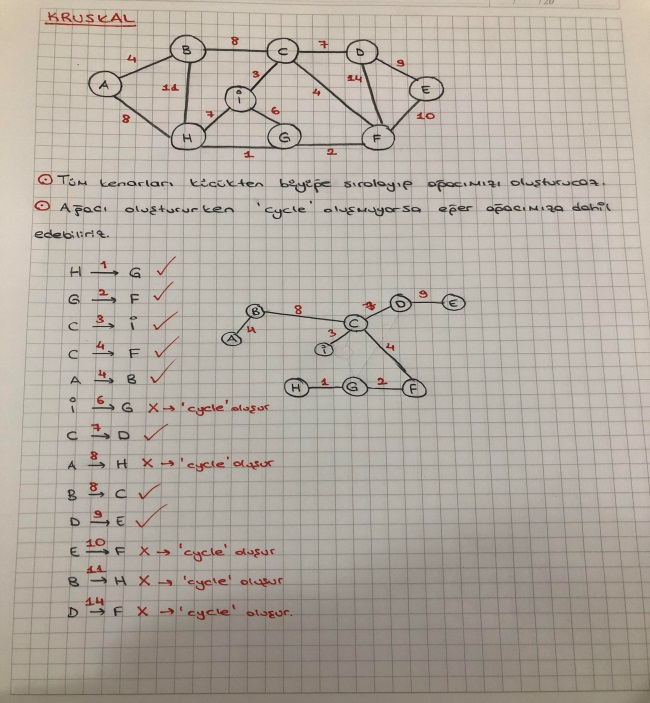 KRUSKAL
B 8 C 7 D
4 9
A 11 3 14 E
i 4
8 7 6 10
H G F
1 2
Tüm kenarları küçükten büyüğe sıralayıp ağacımızı oluşturucaz.
Ağacı oluştururken 'cycle' oluşmuyorsa eğer ağacımıza dahil
edebiliriz.
H 1→ G ✓
G 2→ F ✓
C 3→ i ✓
C 4→ F ✓
A 4→ B ✓
i 6→ G X → 'cycle' oluşur
C 7→ D ✓
A 8→ H X → 'cycle' oluşur
B 8→ C ✓
D 9→ E ✓
E 10→ F X → 'cycle' oluşur
B 11→ H X → 'cycle' oluşur
D 14→ F X → 'cycle' oluşur.
D 9 E
B 8 C
A 4 3 i 4
H 1 G 2 F